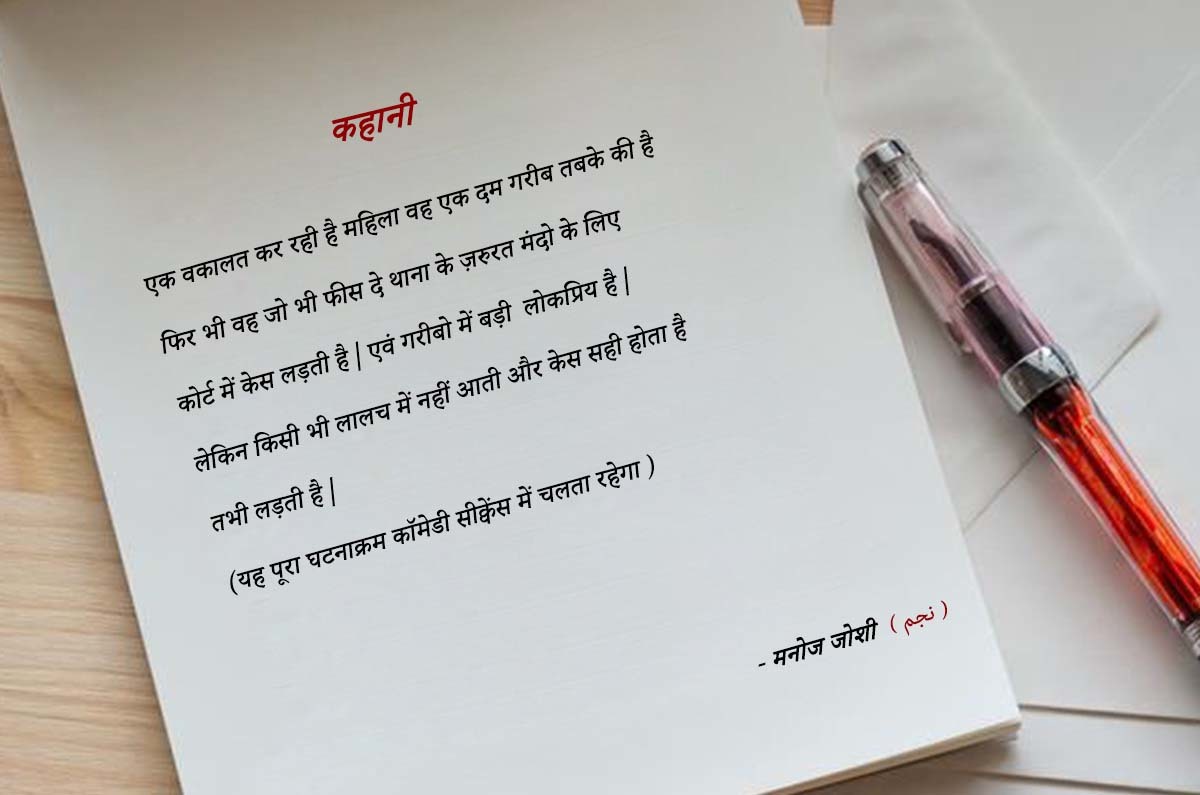 कहानी
एक वकालत कर रही है महिला वह एक दम गरीब तबके की है
फिर भी वह जो भी फीस दे थाना के ज़रुरत मंदो के लिए
कोर्ट में केस लड़ती है | एवं गरीबो में बड़ी लोकप्रिय है |
लेकिन किसी भी लालच में नहीं आती और केस सही होता है
तभी लड़ती है |
(यह पूरा घटनाक्रम कॉमेडी सीक्वेंस में चलता रहेगा )
- मनोज जोशी ( نجم )